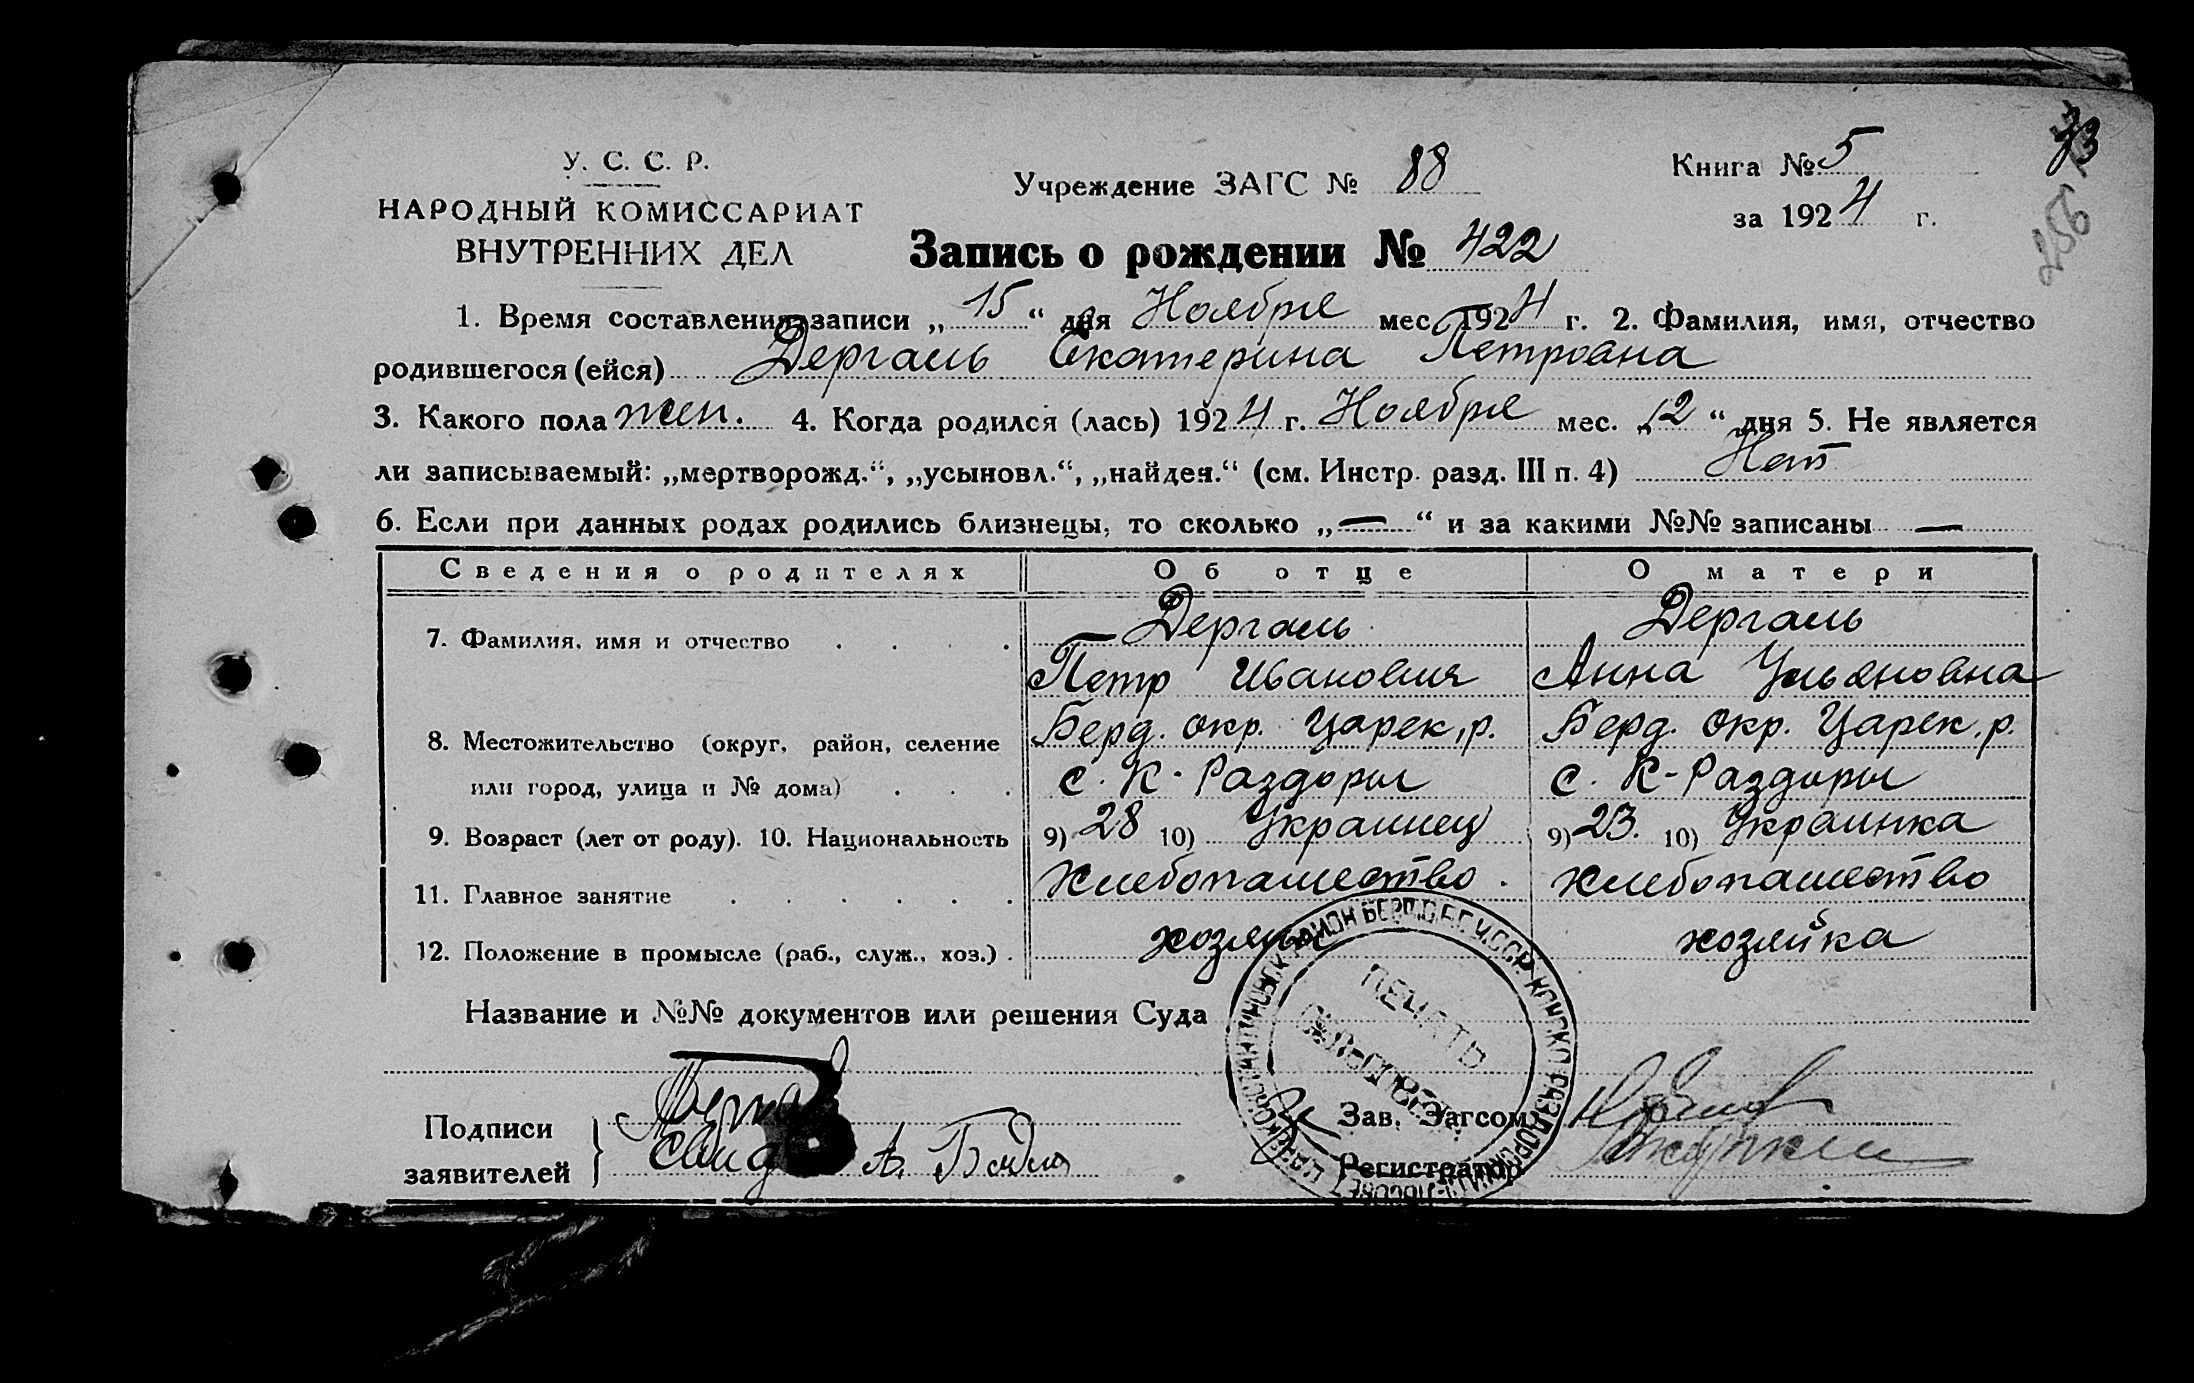 У. С. С. Р.
НАРОДНЫЙ КОМИССАРИАТ
ВНУТРЕННИХ ДЕЛ
Учреждение ЗАГС № 88
Книга № 5
за 1924 г.
Запись о рождении № 422
1. Время составления записи „ 15 “ дня Ноября мес. 1924 г. 2. Фамилия, имя, отчество
родившегося (ейся) Дергаль Екатерина Петровна
3. Какого пола жен. 4. Когда родился (лась) 1924 г. Ноября мес. „12 “ дня 5. Не является
ли записываемый: „мертворожд.“, „усыновл.“, „найден.“ (см. Инстр. разд. III п. 4) Нет
6. Если при данных родах родились близнецы, то сколько „ — “ и за какими №№ записаны —
Сведения о родителях Об отце О матери
7. Фамилия, имя и отчество Дергаль Дергаль
Петр Иванович Анна Ульяновна
8. Местожительство (округ, район, селение Берд. окр. Царек, р. Берд. окр. Царек. р.
или город, улица и № дома) с. К-Раздоры с. К-Раздоры
9. Возраст (лет от роду). 10. Национальность 9) 28 10) Украинец 9) 23. 10) Украинка
11. Главное занятие Хлебопашество. хлебопашество
12. Положение в промысле (раб., служ., хоз.) хозяин хозяйка
Название и №№ документов или решения Суда
ПЕЧАТЬ
Подписи
заявителей
А.
Зав. Загсом
Регистратор